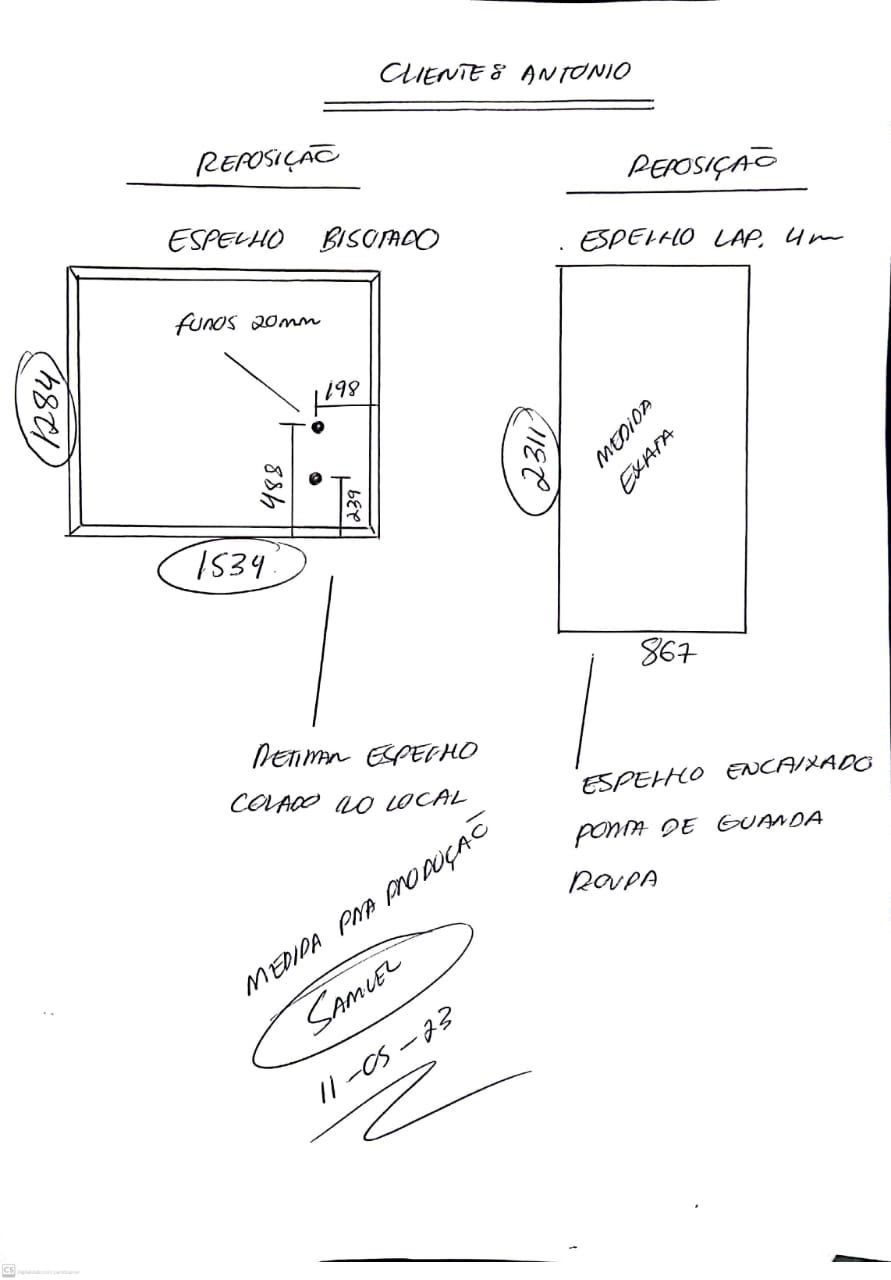 CLIENTE: ANTONIO
REPOSIÇÃO
ESPELHO BISOTADO
FUROS 20mm
198
1284
488
239
1534
RETIRAR ESPELHO
COLADO NO LOCAL
REPOSIÇÃO
ESPELHO LAP. 4m
MEDIDA
EXATA
2311
867
ESPELHO ENCAIXADO
PORTA DE GUARDA
ROUPA
MEDIDA PRA PRODUÇÃO
SAMUEL
11-05-23
CS